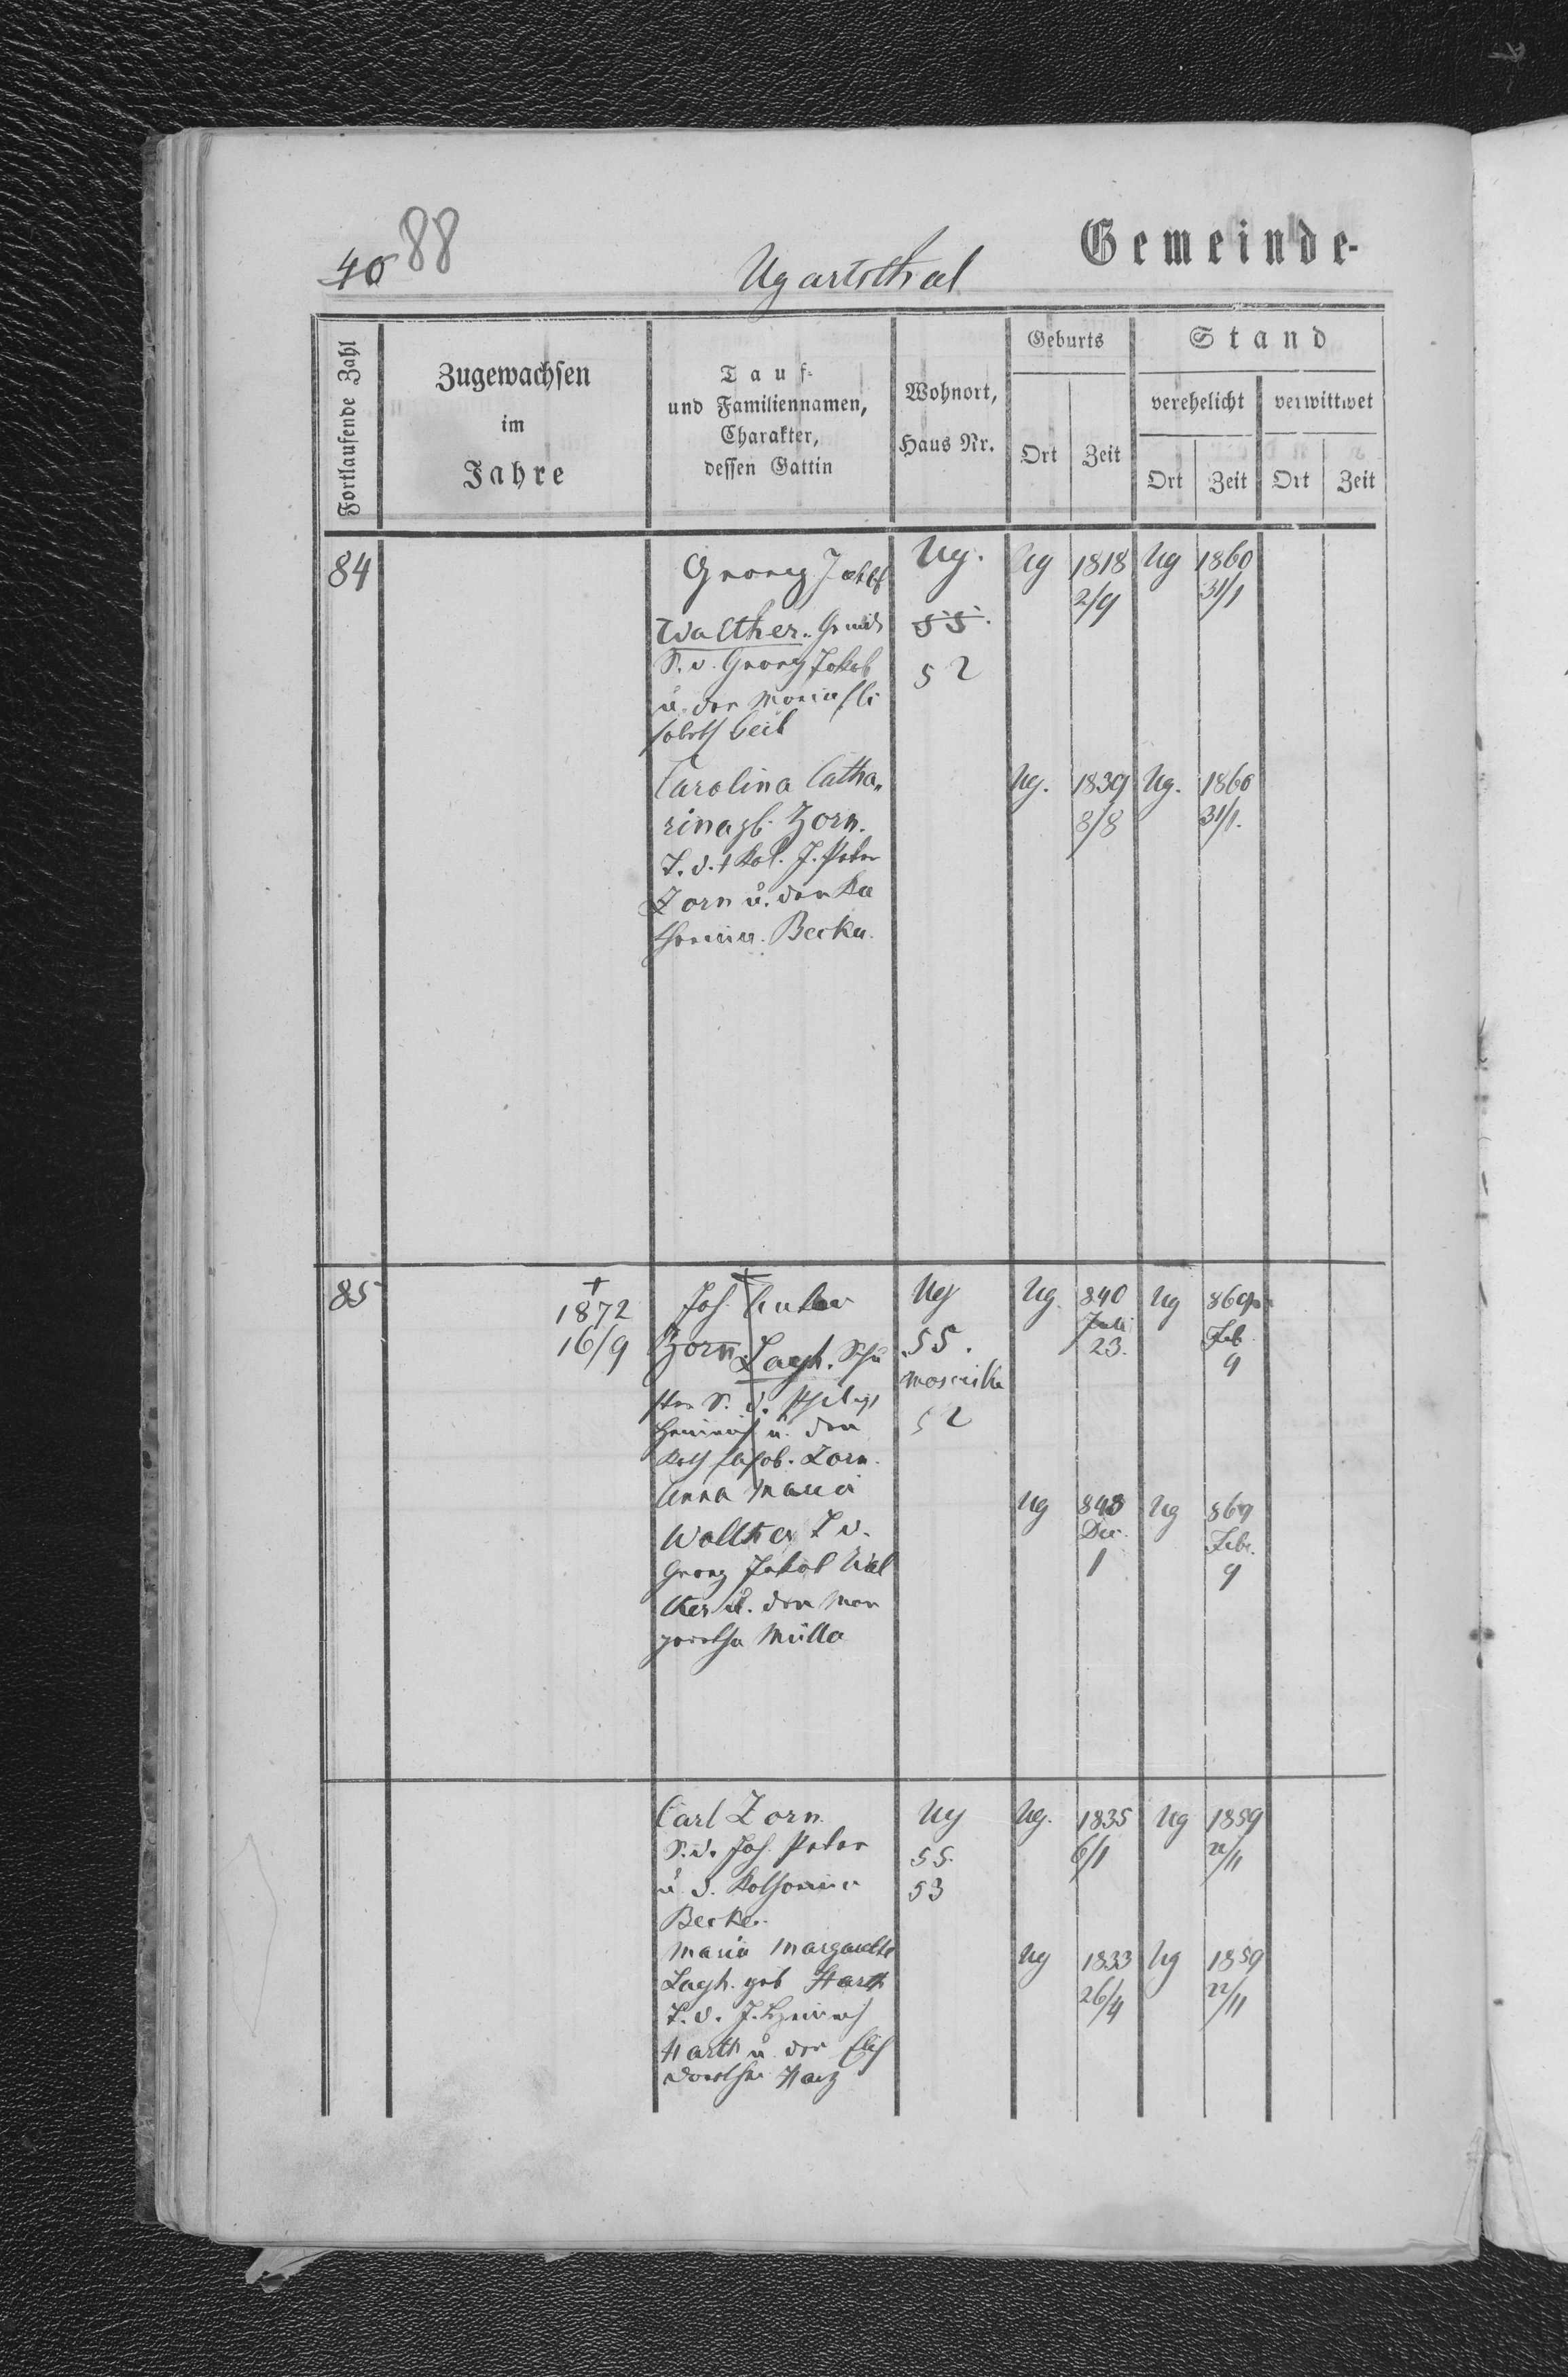 40 88
Ugartsthal
Gemeinde-
Fortlaufende Zahl
Zugewachsen
im
Jahre
Tauf-
und Familiennamen,
Charakter,
dessen Gattin
Wohnort,
Haus Nr.
Geburts
Ort Zeit
Stand
verehelicht verwittwet
Ort Zeit Ort Zeit
84 Georg Jakob Ug. Ug 1818 Ug 1860
2/9 31/1
Walther. 55.
S. v. Georg Jakob 52
u. der Maria Eli
sabeth
Carolina Catha„ Ug. 1839 Ug. 1860
rina gb. Zorn. 8/8 31/1.
T. d. † Kol. J. Peter
Zorn u. der Ka
tharina. Becker.
85 † Joh. Ug Ug 840 Ug 869
1872 Juli Feb.
16/9 Zorn Lagh. 55. 23. 9
S. d. 52
Heinrich u. der
Kath Jakob. Zorn.
Anna Maria Ug 843 Ug 869
Walther T v. Dec. Febr.
Georg Jakob Wal 1 9
ther u. der Mar
garetha Müller
Carl Zorn. Ug Ug. 1835 Ug 1859
S. d. Joh. Peter 55. 6/1 22/11
u. d. Katharina 53
Becker.
Maria Margaretha Ug 1833 Ug 1859
Lagh. geb Harth 26/4 22/11
T. d. J. Heinrich
Harth u. der Elis
Dorothea